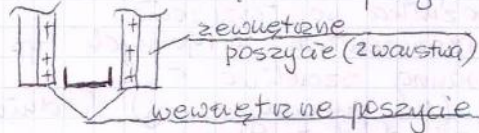 zewnętrzne
poszycie (2 warstwa)
wewnętrzne poszycie